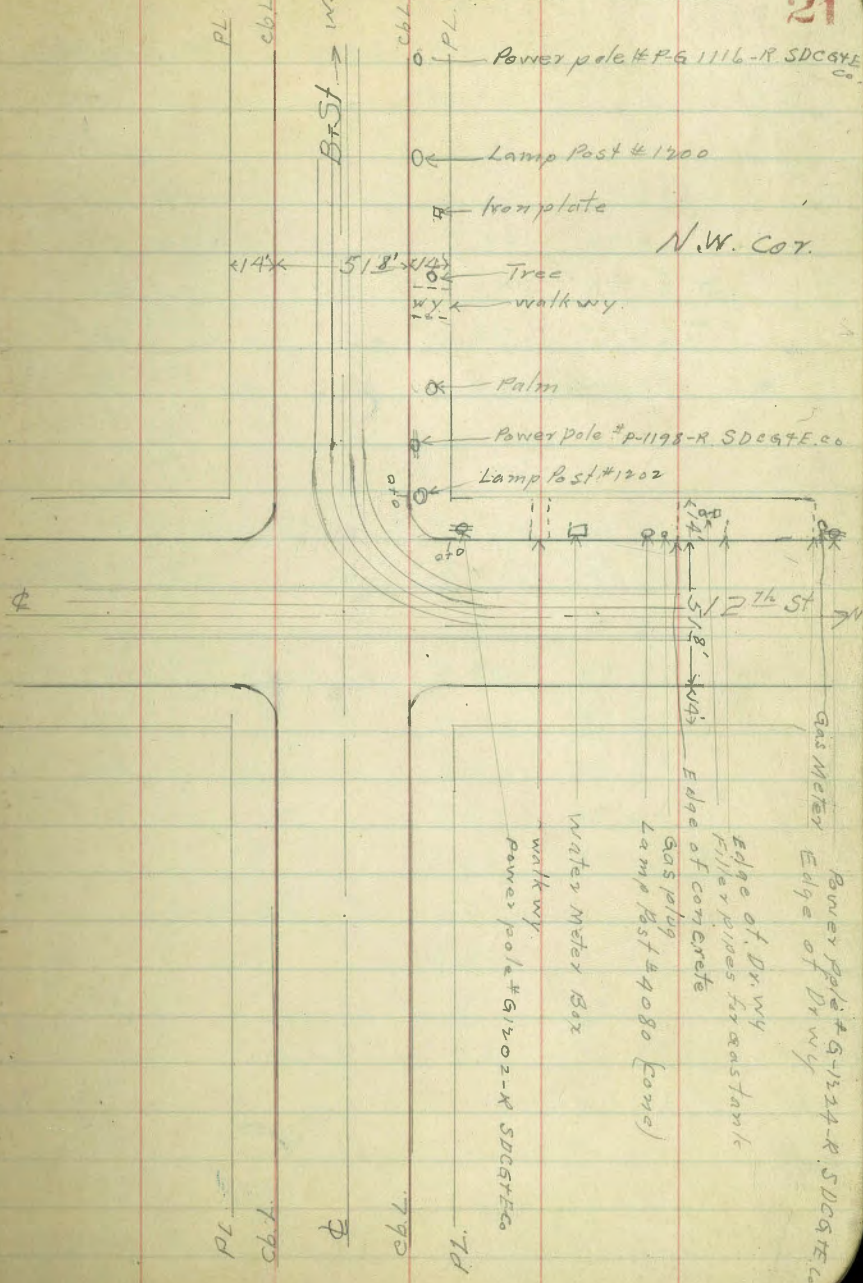 21
PL
cbL
W
cbL
PL.
Power pole # P-G 1116-R SDCG&E Co.
B St.
Lamp Post # 1200
Iron plate
N.W. Cor.
14'
51.8'
14'
Tree
wy.
walkwy.
Palm
Power pole # P-1198-R. SDCG&E.Co
Lamp Post #1202
0+0
0+0
14'
12th St
N
51.8'
14'
℄
Gas Meter
Power pole # G-1224-R. SDCG&E.Co
Edge of Dr wy
Edge of Dr. wy
Filler pipes for gas tank
Edge of concrete
Gas plug
Lamp Post # 4080 (conc)
Water Meter Box
walkwy.
Power pole # G1202-R SDCG&ECo
PL
cbL
℄
cbL
PL